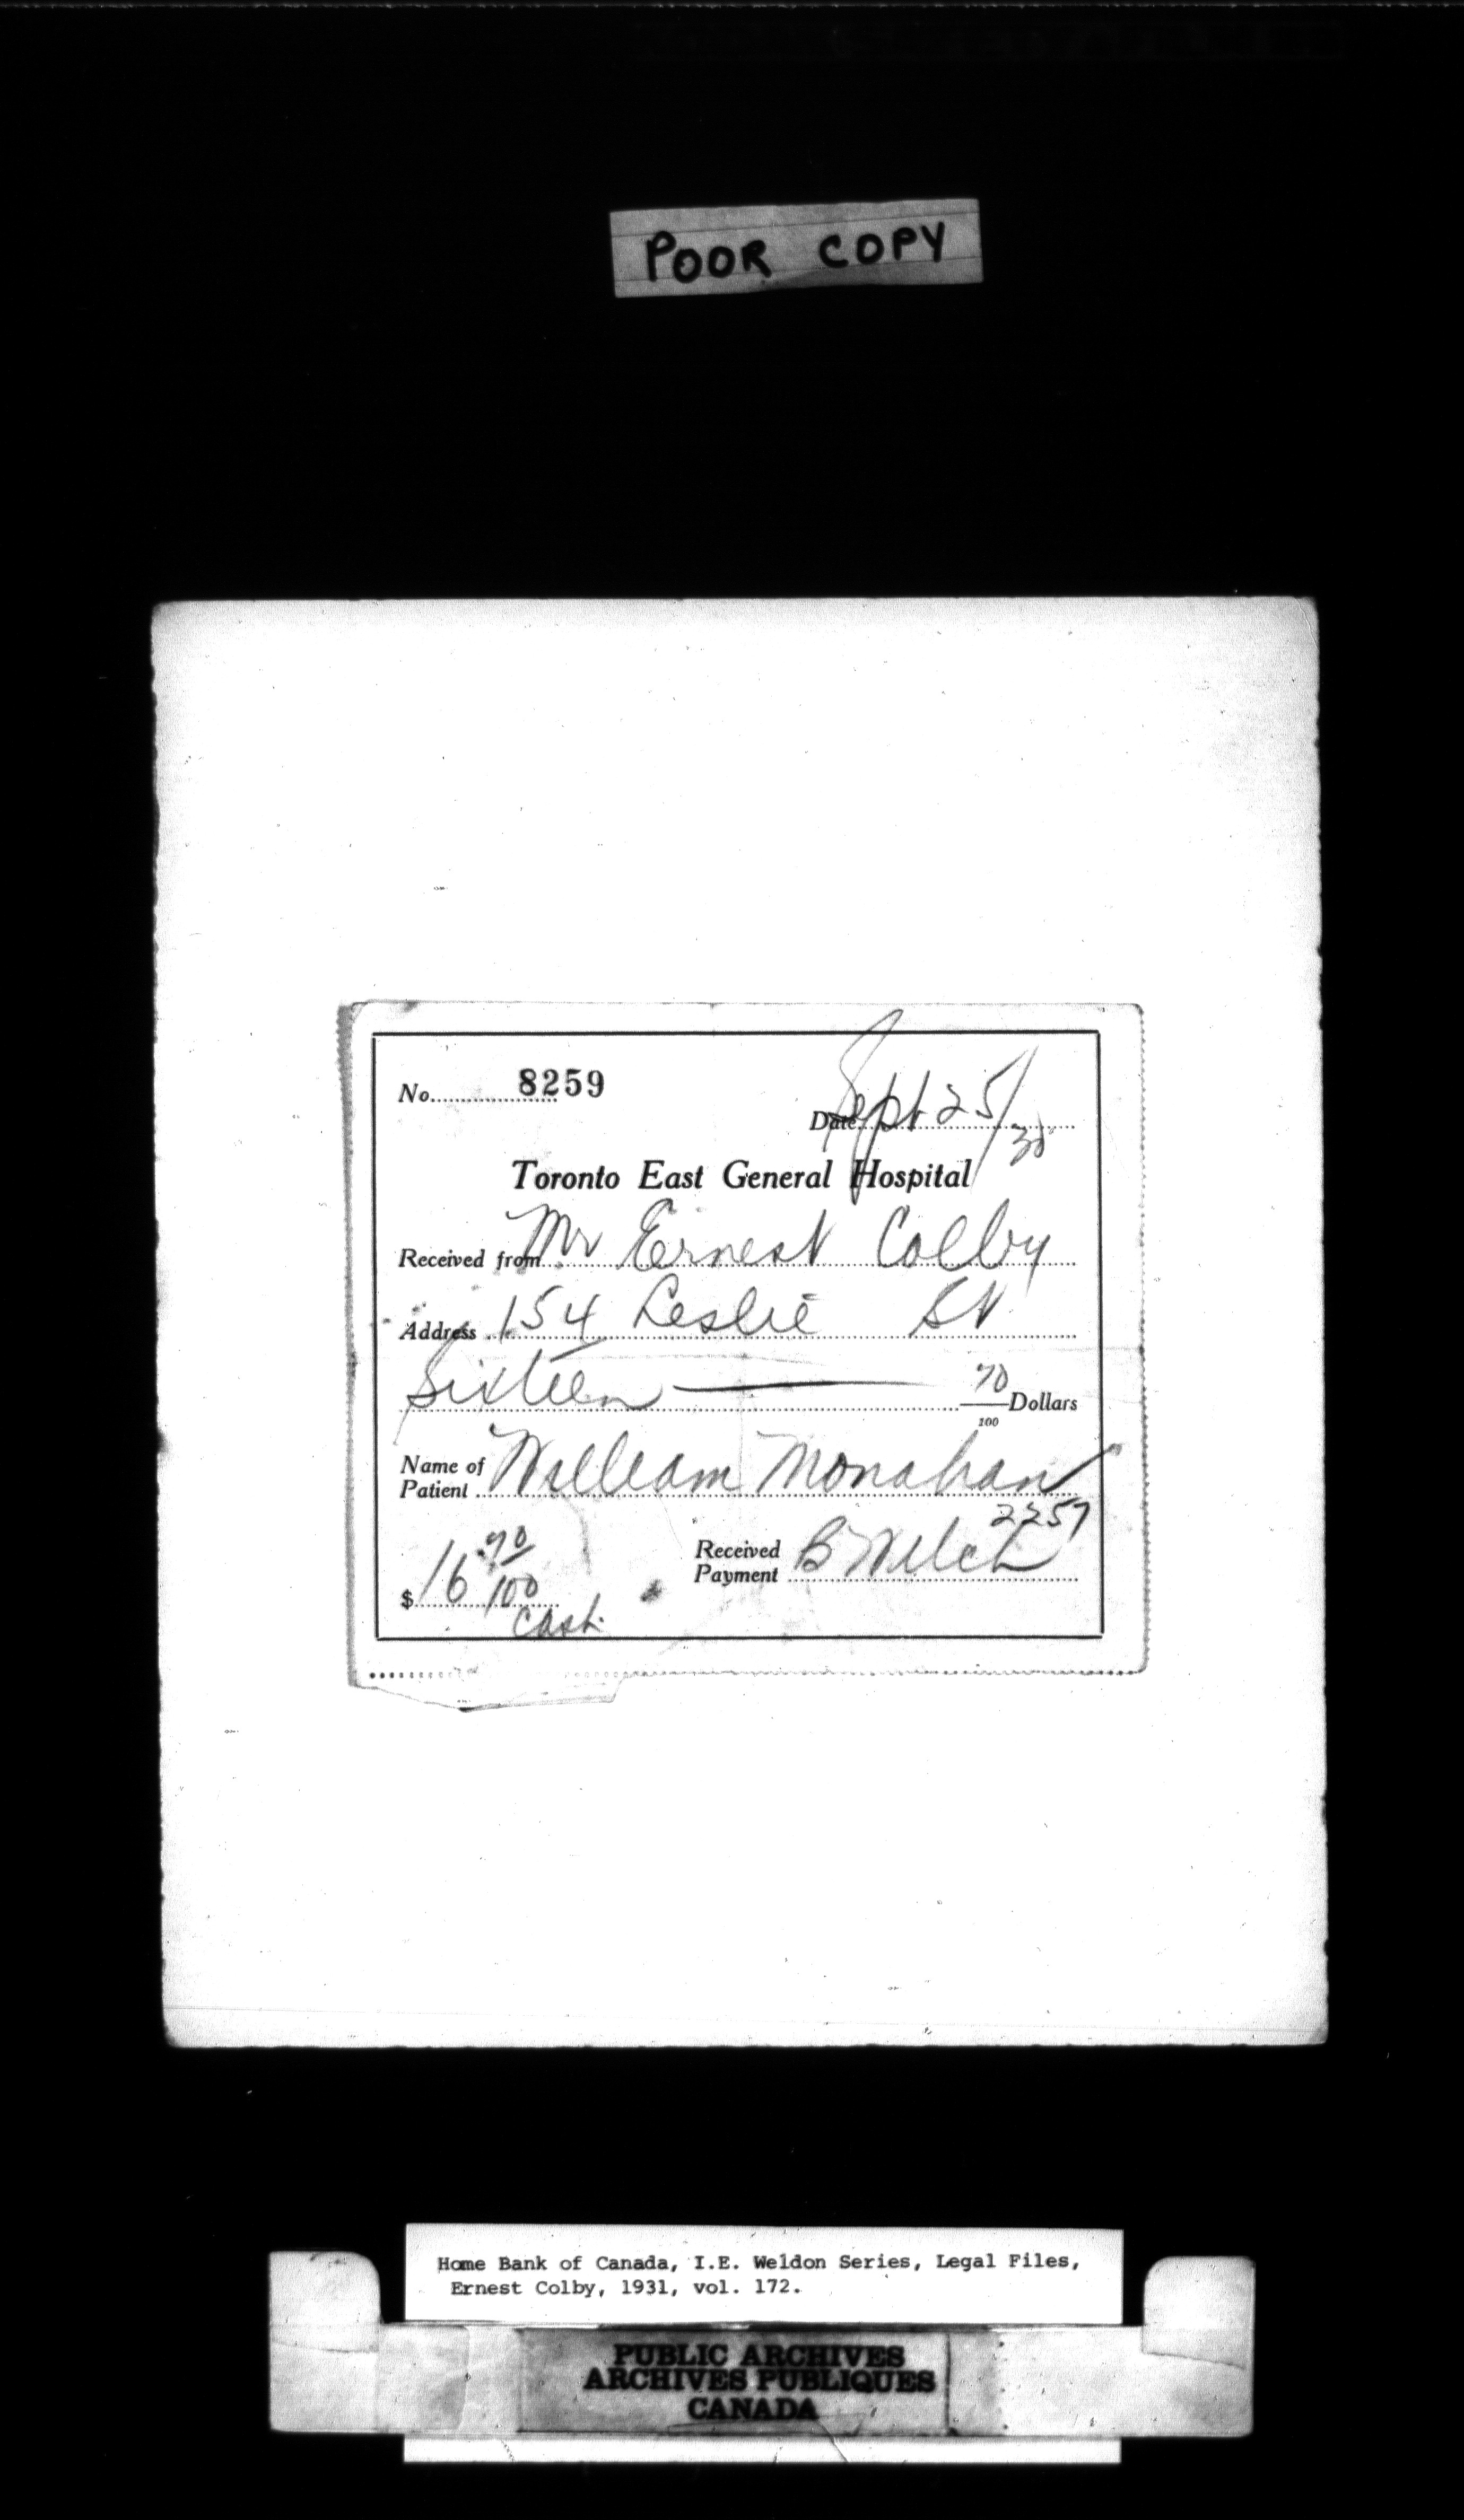 POOR COPY
No. 8259
Date Sept 25/30
Toronto East General Hospital
Received from Mr Ernest Colby
Address 154 Leslie St
Sixteen 70/100 Dollars
Name of Patient William Monahan
2257
$ 16 .70/100 Received Payment B Welch
Cash.
Home Bank of Canada, I.E. Weldon Series, Legal Files,
Ernest Colby, 1931, vol. 172.
PUBLIC ARCHIVES
ARCHIVES PUBLIQUES
CANADA